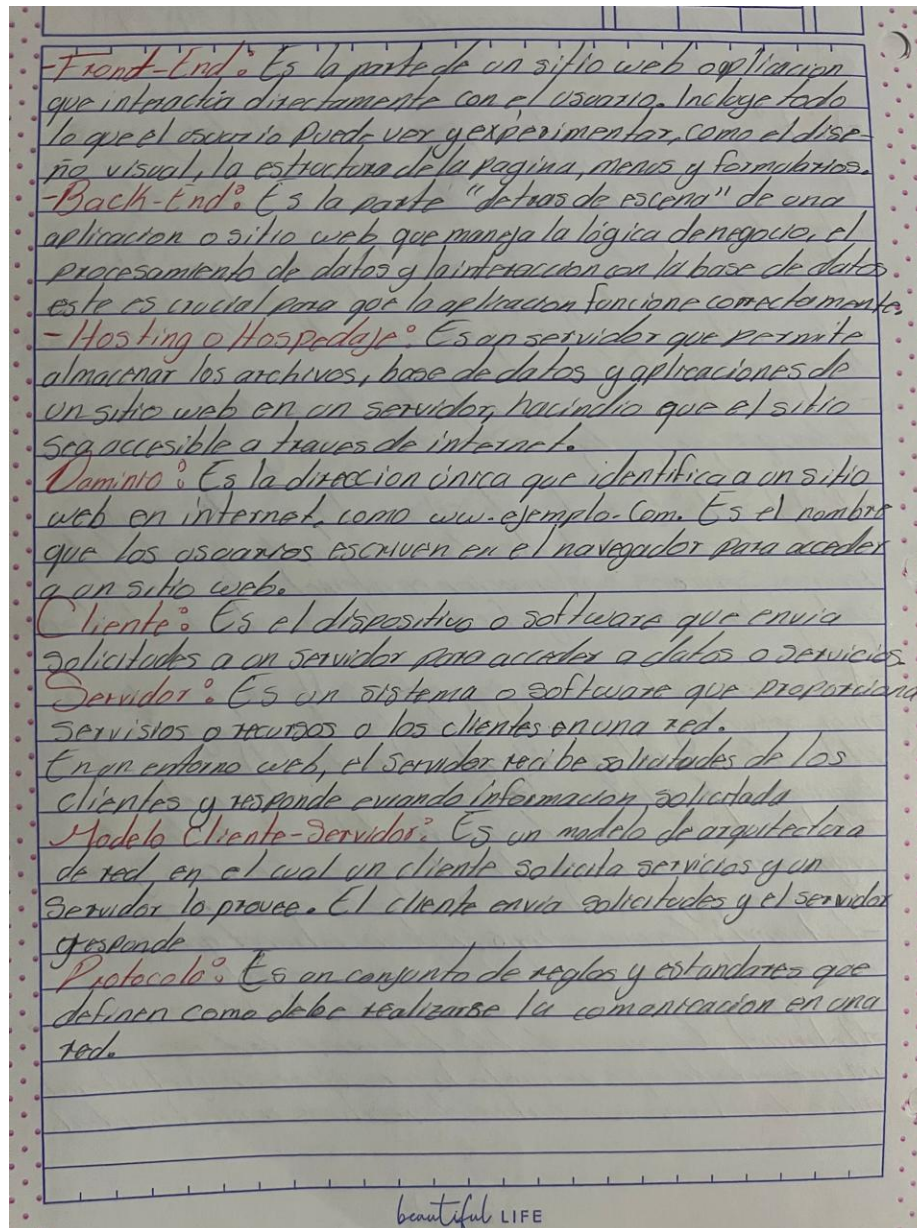 -Front-End: Es la parte de un sitio web o aplicacion
que interactúa directamente con el usuario. Incluye todo
lo que el usuario puede ver y experimentar, como el dise-
ño visual, la estructura de la pagina, menus y formularios.
-Back-End: Es la parte "detras de escena" de una
aplicacion o sitio web que maneja la lógica de negocio, el
procesamiento de datos y la interaccion con la base de datos
este es crucial para que la aplicacion funcione correctamente.
- Hosting o Hospedaje: Es un servidor que permite
almacenar los archivos, base de datos y aplicaciones de
un sitio web en un servidor, hacindio que el sitio
sea accesible a traves de internet.
Daminio: Es la direccion única que identifica a un sitio
web en internet, como ww.ejemplo.com. Es el nombre
que los usuarios escriven en el navegador para acceder
a un sitio web.
Cliente: Es el dispositivo o software que envia
solicitudes a un servidor para acceder a datos o servicios.
Servidor: Es un sistema o software que proporciona
servisios o recursos a los clientes en una red.
En un entorno web, el servidor recibe solicitudes de los
clientes y responde eviando informacion solicitada
Modelo Cliente-Servidor: Es un modelo de arquitectura
de red, en el cual un cliente solicita servicios y un
servidor lo provee. El cliente envia solicitudes y el servidor
responde
Protocolo: Es un conjunto de reglas y estandares que
definen como debe realizarse la comunicacion en una
red.
beautiful LIFE